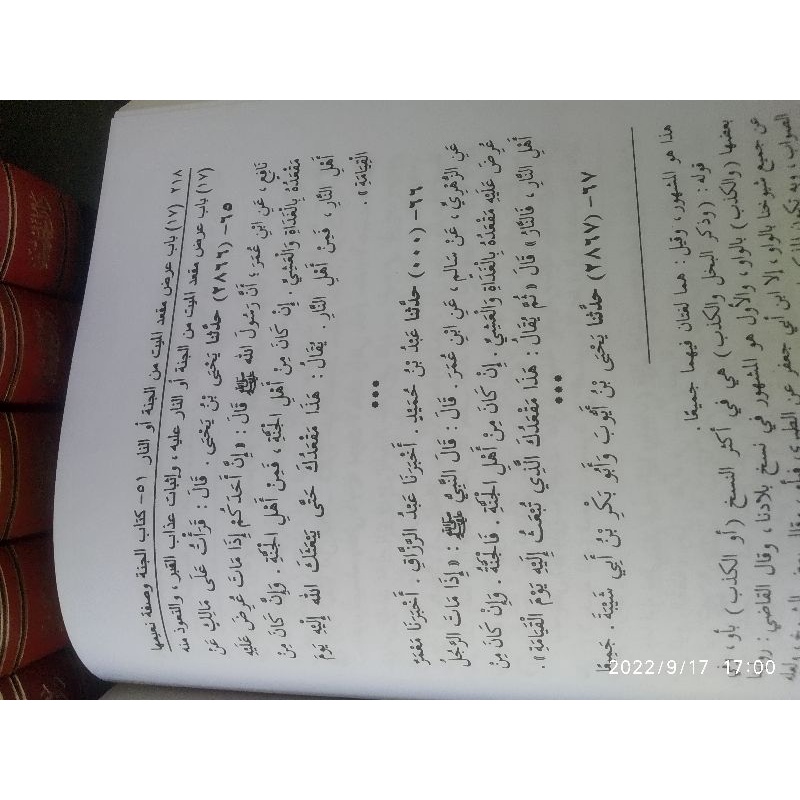 ٢١٨ (١٧) باب عرض مقعد الميت من الجنة أو النار ٥١- كتاب الجنة وصفة نعيمها
(١٧) باب عرض مقعد الميت من الجنة أو النار عليه ، وإثبات عذاب القبر ، والتعوذ منه
٦٥- (٢٨٦٦) حدَّثنا يَحْيَى بْنُ يَحْيَى . قَالَ : قَرَأْتُ عَلَى مَالِكٍ عَنْ
نَافِعٍ ، عَنِ ابْنِ عُمَرَ ؛ أَنَّ رَسُولَ الله ﷺ قَالَ : « إِنَّ أَحَدَكُمْ إِذَا مَاتَ عُرِضَ عَلَيْهِ
مَقْعَدُهُ بِالْغَدَاةِ وَالْعَشِيِّ . إِنْ كَانَ مِنْ أَهْلِ الْجَنَّةِ ، فَمِنْ أَهْلِ الْجَنَّةِ . وَإِنْ كَانَ مِنْ
أَهْلِ النَّارِ ، فَمِنْ أَهْلِ النَّارِ . يُقَالُ : هَذَا مَقْعَدُكَ حَتَّى يَبْعَثَكَ الله إِلَيْهِ يَوْمَ
الْقِيَامَةِ » .
•••
٦٦- (٠٠٠) حدَّثنا عَبْدُ بْنُ حُمَيْدٍ . أَخْبَرَنَا عَبْدُ الرَّزَّاقِ . أَخْبَرَنَا مَعْمَرٌ
عَنِ الزُّهْرِيِّ ، عَنْ سَالِمٍ ، عَنِ ابْنِ عُمَرَ . قَالَ : قَالَ النَّبِيُّ ﷺ : « إِذَا مَاتَ الرَّجُلُ
عُرِضَ عَلَيْهِ مَقْعَدُهُ بِالْغَدَاةِ وَالْعَشِيِّ . إِنْ كَانَ مِنْ أَهْلِ الْجَنَّةِ . فَالْجَنَّةُ . وَإِنْ كَانَ مِنْ
أَهْلِ النَّارِ ، فَالنَّارُ » قَالَ « ثُمَّ يُقَالُ : هَذَا مَقْعَدُكَ الَّذِي تُبْعَثُ إِلَيْهِ يَوْمَ الْقِيَامَةِ » .
•••
٦٧- (٢٨٦٧) حدَّثنا يَحْيَى بْنُ أَيُّوبَ وَأَبُو بَكْرِ بْنُ أَبِي شَيْبَةَ . جَمِيعًا
هذا هو المشهور ، وقيل : هما لغتان فيهما جميعًا .
قوله : (وذكر البخل والكذب) هي في أكثر النسخ (أو الكذب) بأو ، وفي
بعضها (والكذب) بالواو ، والأول هو المشهور في نسخ بلادنا ، وقال القاضي : روايتنا
عن جميع شيوخنا بالواو ، إلا ابن أبي جعفر عن الطبري
الصواب ، وبه تكون
2022/9/17 17:00